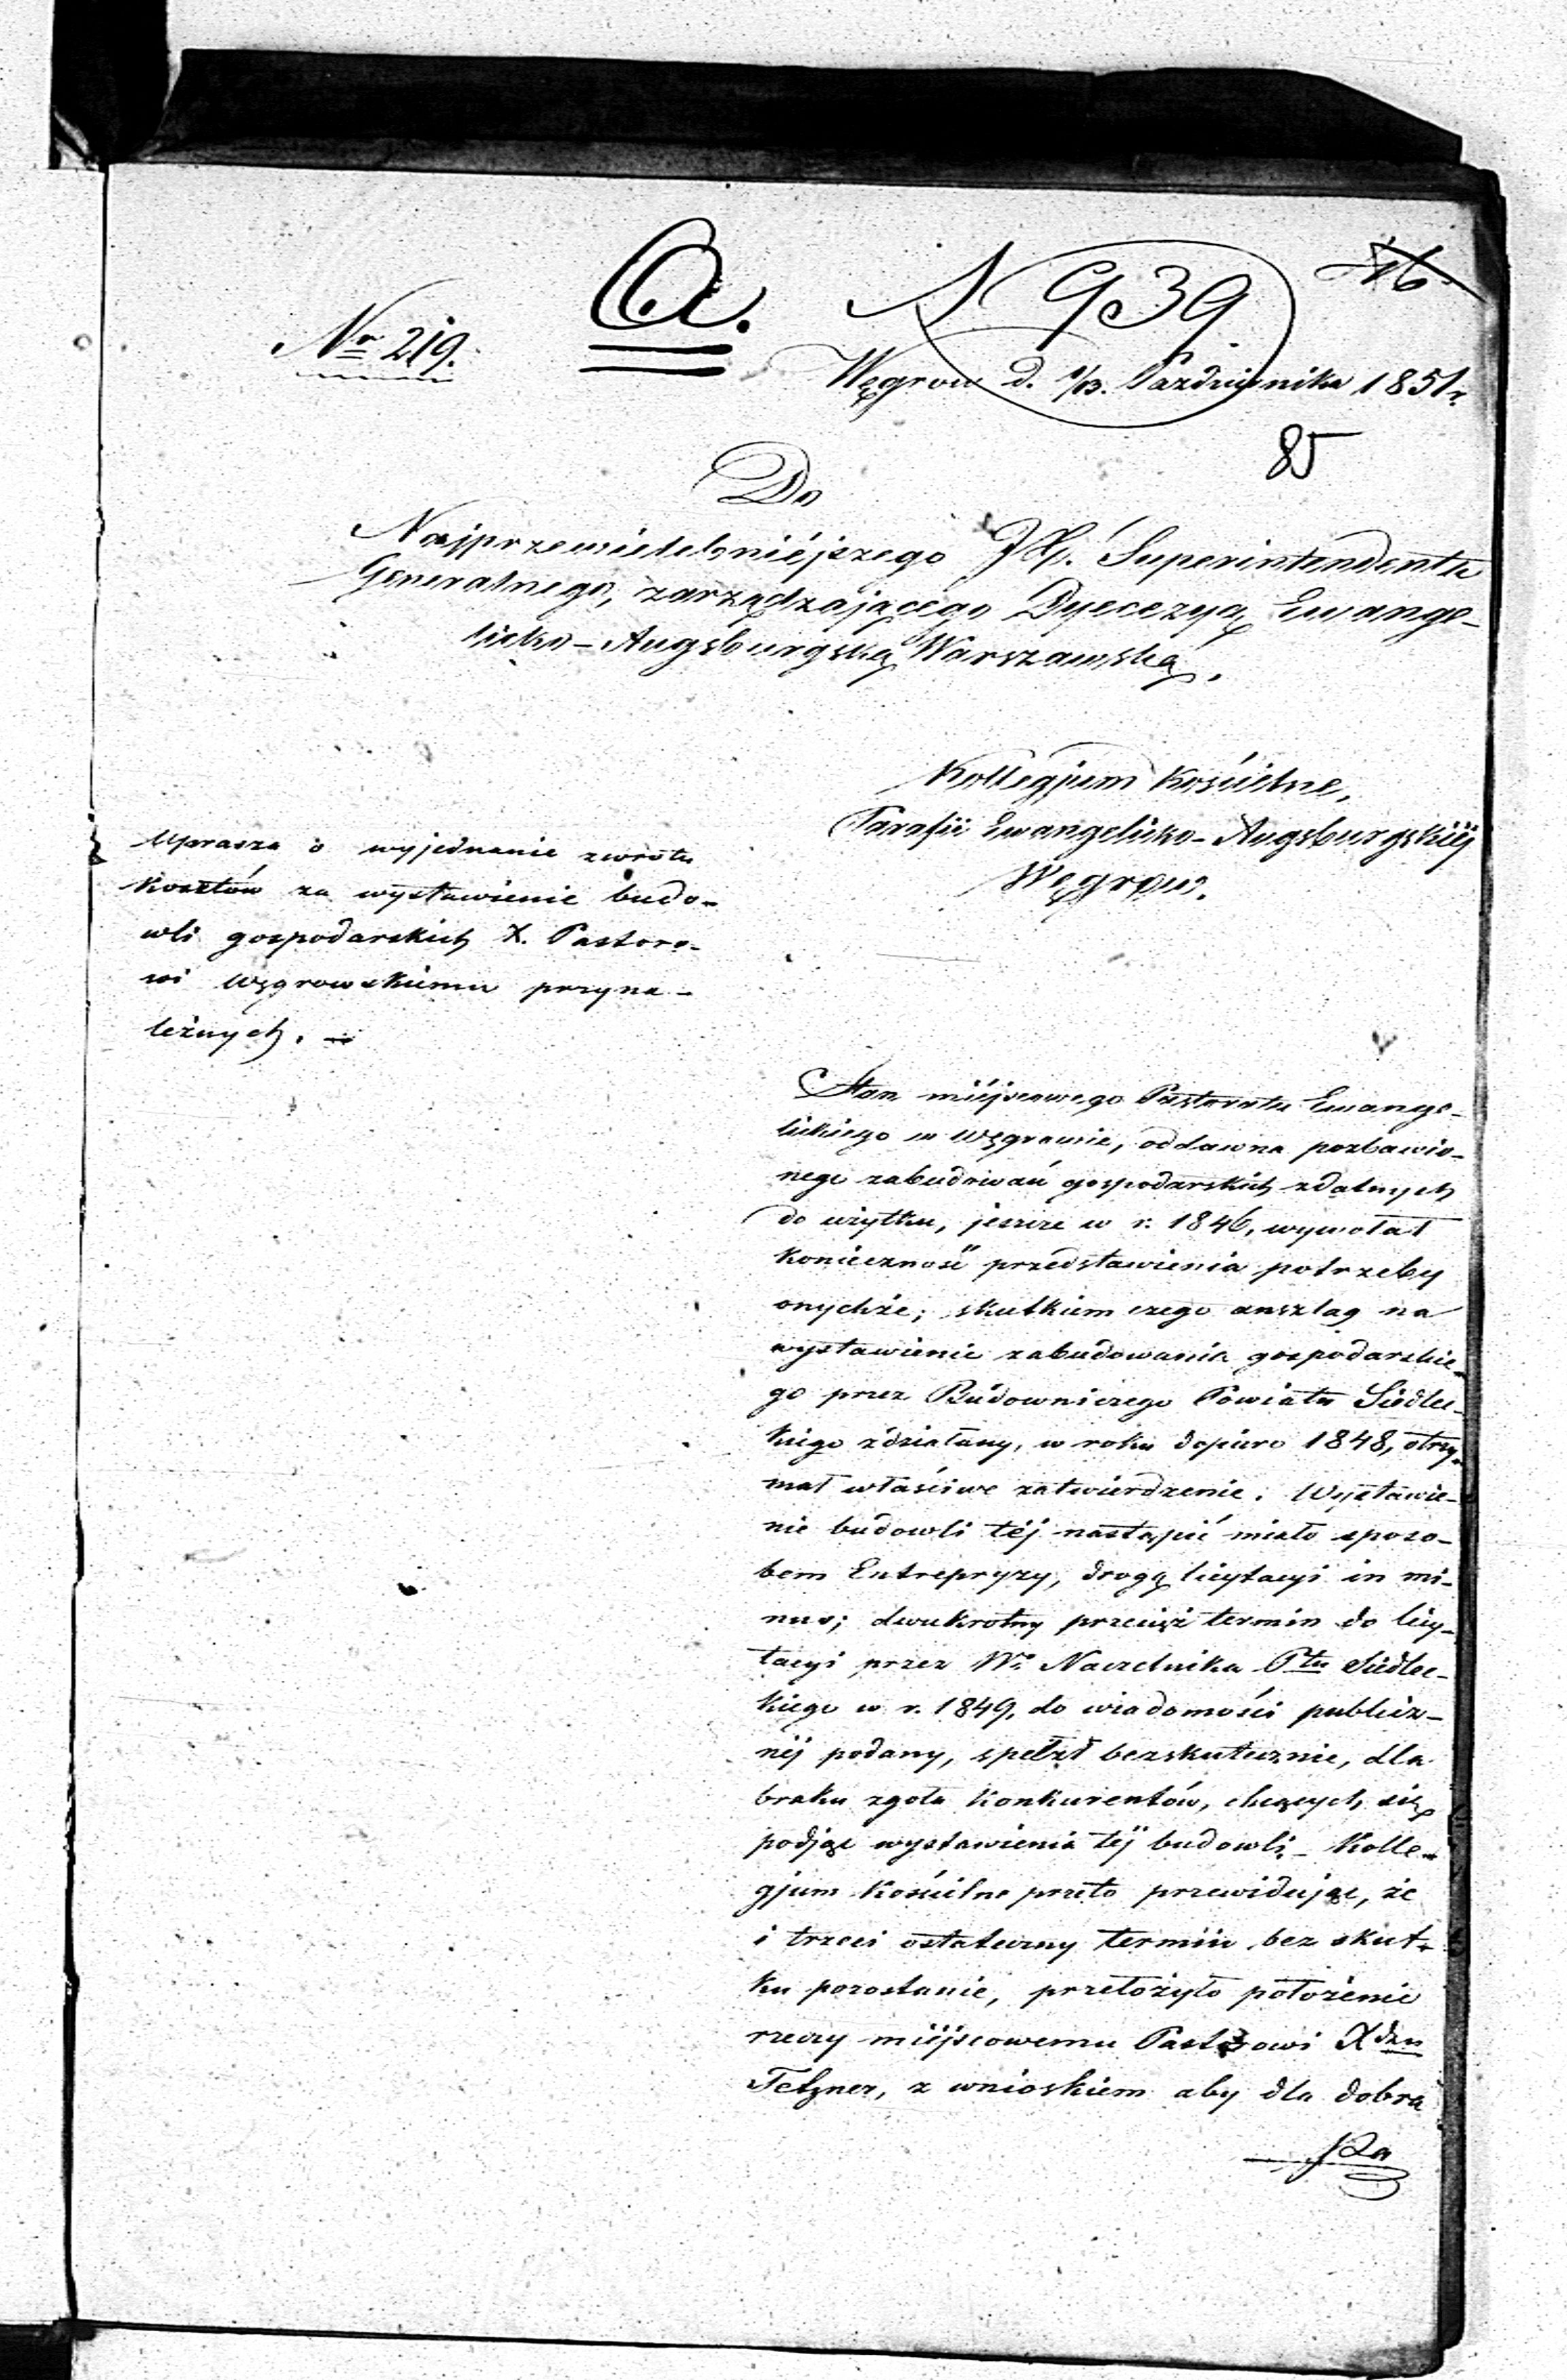 A. N 939 46
Nr 219.
Węgrow d. 1/13. Października 1851 r.
85
Do
Najprzewielebniéjszego JX. Superintendenta
Generalnego, zarządzającego Dyecezyą Ewange-
licko-Augsburgską Warszawską.
Kollegjum Kościelne,
Parafii Ewangelicko-Augsburgskiéj
Węgrow.
Uprasza o wyjednanie zwrotu
kosztów za wystawienie budo-
wli gospodarskich X. Pastoro-
wi Węgrowskiemu przyna-
leżnych. —
Stan miéjscowego Pastoratu Ewange-
lickiego w Węgrowie, oddawna pozbawio-
nego zabudowań gospodarskich zdatnych
do użytku, jeszcze w r. 1846, wywołał
konieczność przedstawienia potrzeby
onychże; skutkiem czego anszlag na
wystawienie zabudowania gospodarskie-
go przez Budowniczego Powiatu Siedlec-
kiego zdziałany, w roku dopiéro 1848, otrzy-
mał właściwe zatwierdzenie. Wystawie-
nie budowli téj nastąpić miało sposo-
bem Entrepryzy, drogą licytacyi in mi-
nus; dwukrotny przecięż termin do licy-
tacyi przez Wo. Naczelnika Ptu Siedlec-
kiego w r. 1849, do wiadomości publicz-
néj podany, spełzł bezskutecznie, dla
braku zgoła konkurentów, chcących się
podjąć wystawienia téj budowli. - Kolle-
gjum Kościelne przeto przewidując, że
i trzeci ostateczny termin bez skut-
ku pozostanie, przełożyło położenie
rzeczy miéjscowemu Pastorowi Xdzu
Tetzner, z wnioskiem aby dla dobra